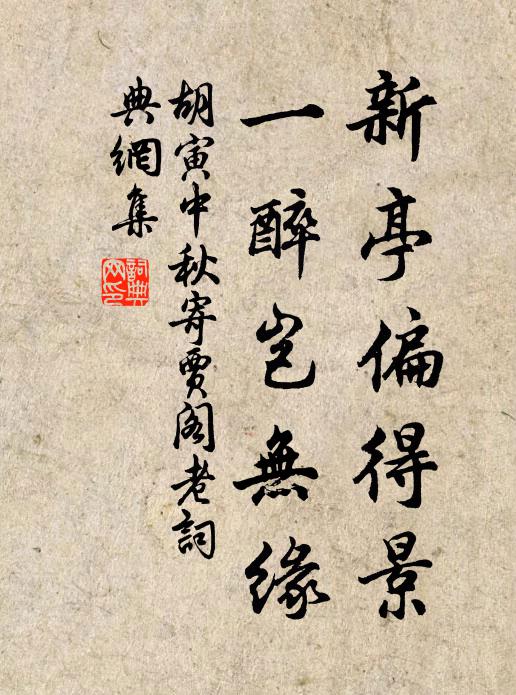 新亭偏得景
一醉岂無緣
胡寅中秋寄賈閣老詞
典網集
詞典网印